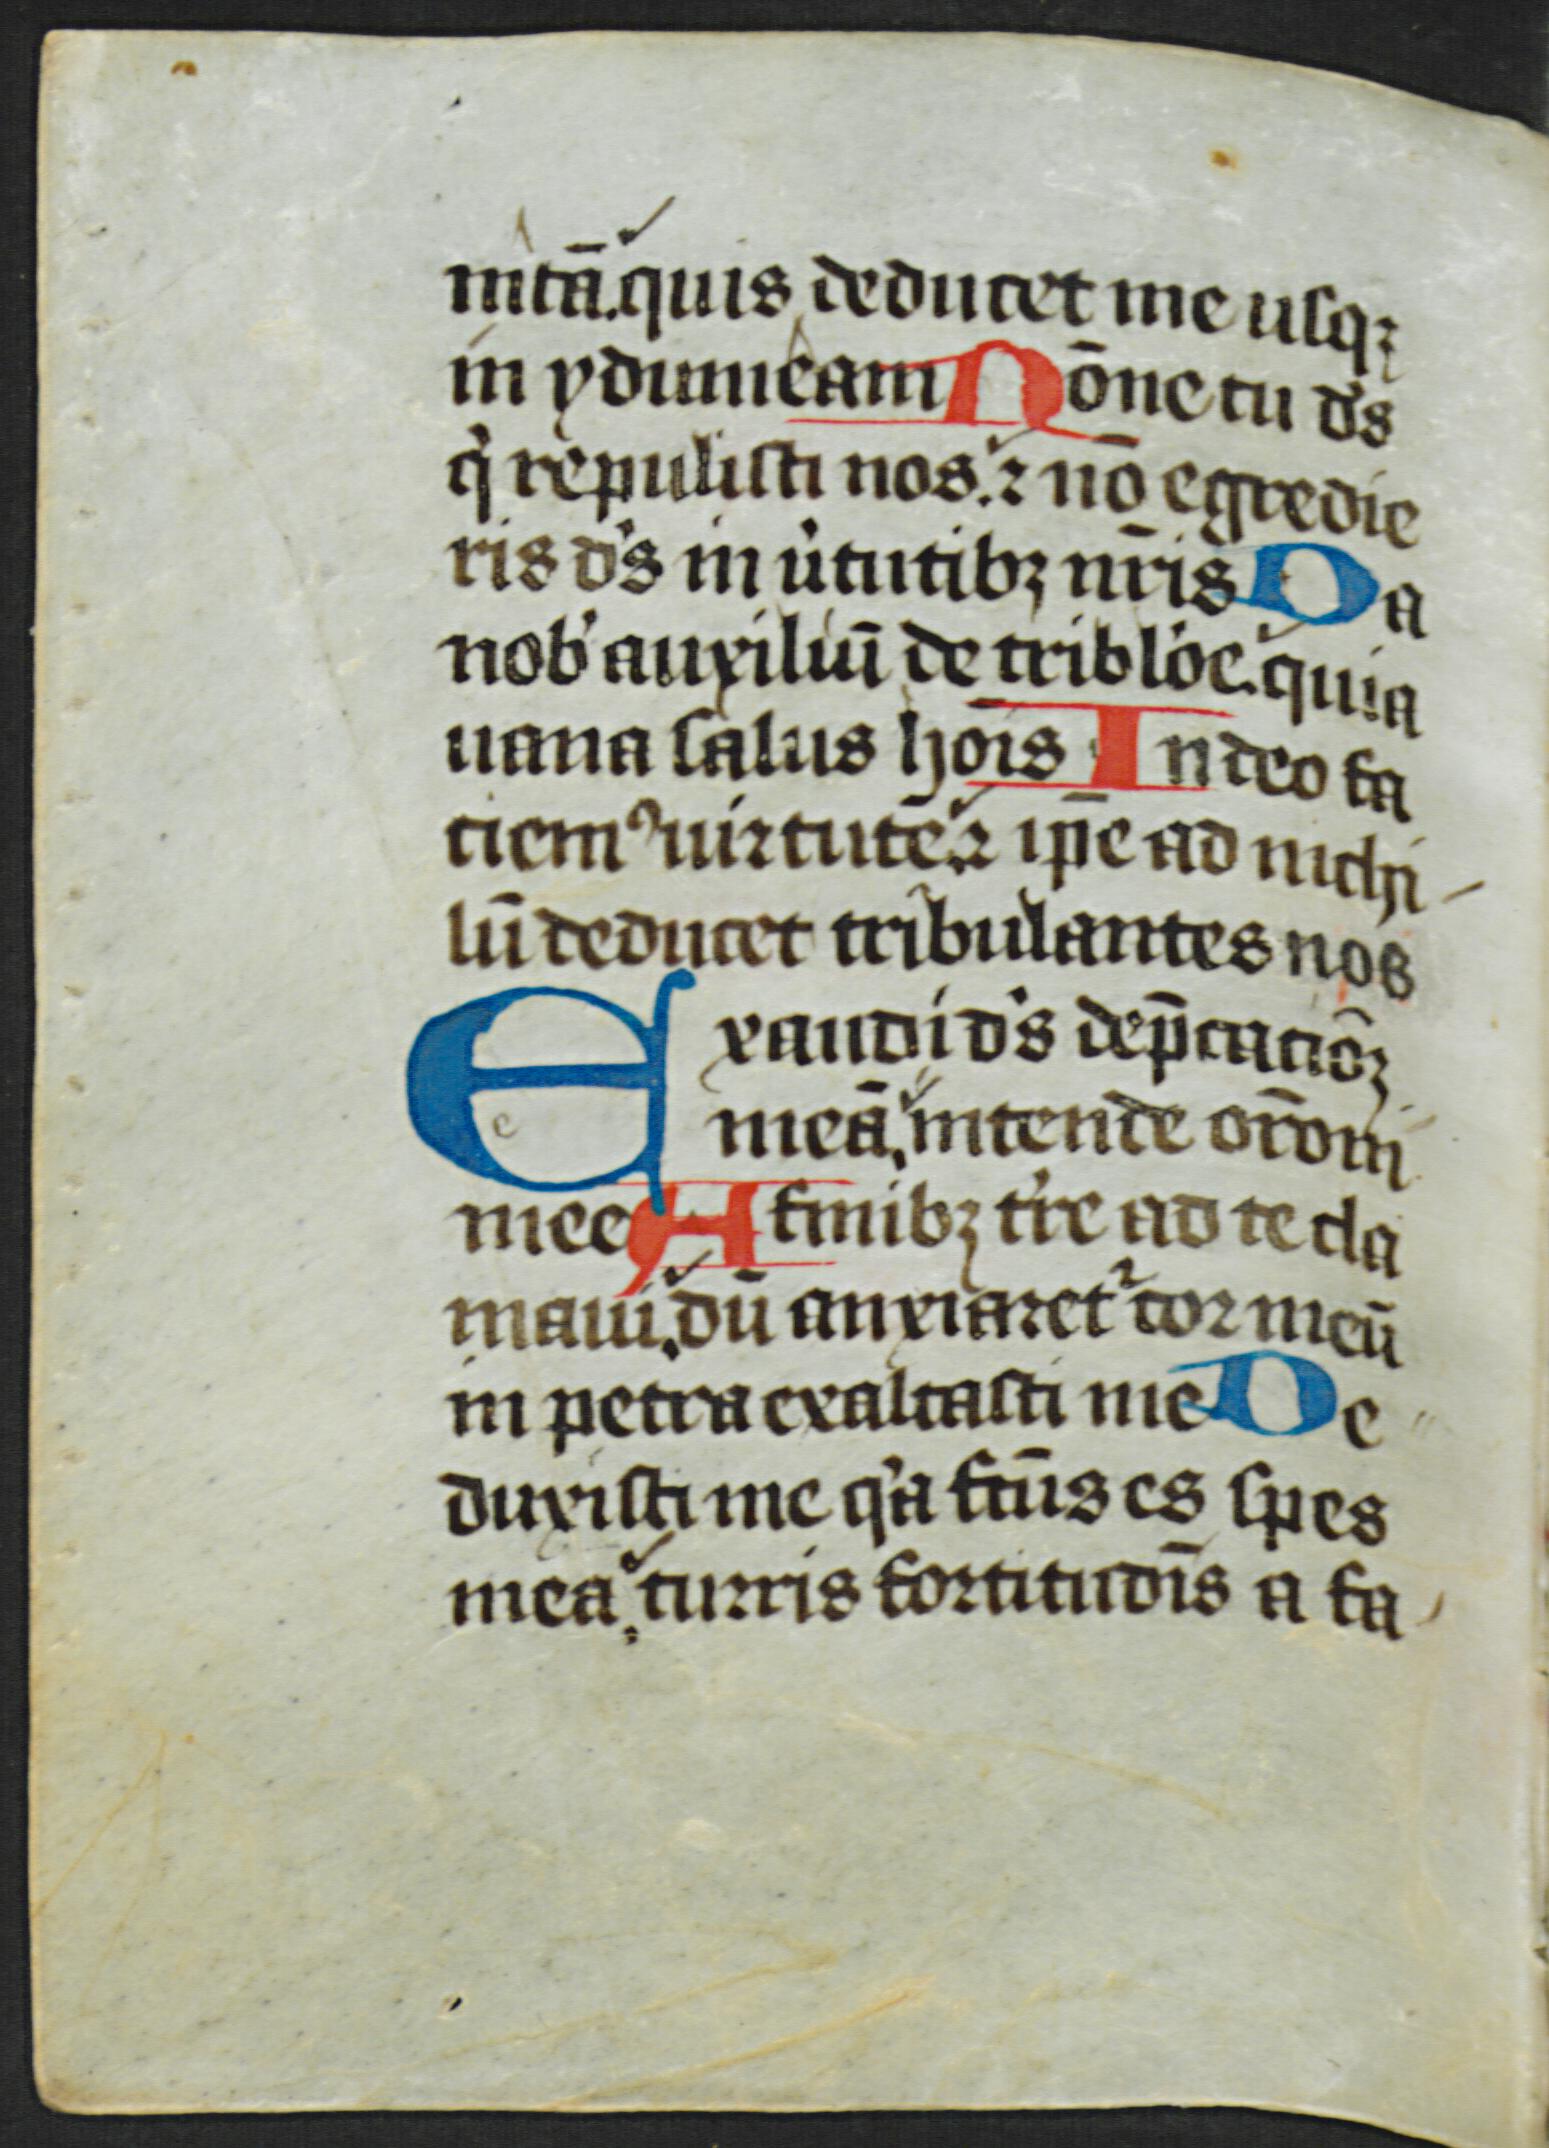 nitā. quis deducet me usqꝫ
in ydumeam Nōne tu d's
q' repulisti nos. ⁊ nō egredie
ris d's in u'tutibꝫ nr̄is Da
nob' auxiliū de tribl'oe. quia
uana salus hoīs In deo fa
ciemꝰ uirtutē. ⁊ ip̄e ad nichi
lū deducet tribulantes nos
Exaudi d's dep̄cacōꝫ
meā, intende or̄oni
mee A finibꝫ t're ad te cla
maui, dū anxiaret᷑ cor meū
in petra exaltasti me De
duxisti me q'a fcūs es spes
mea, turris fortitudīs a fa